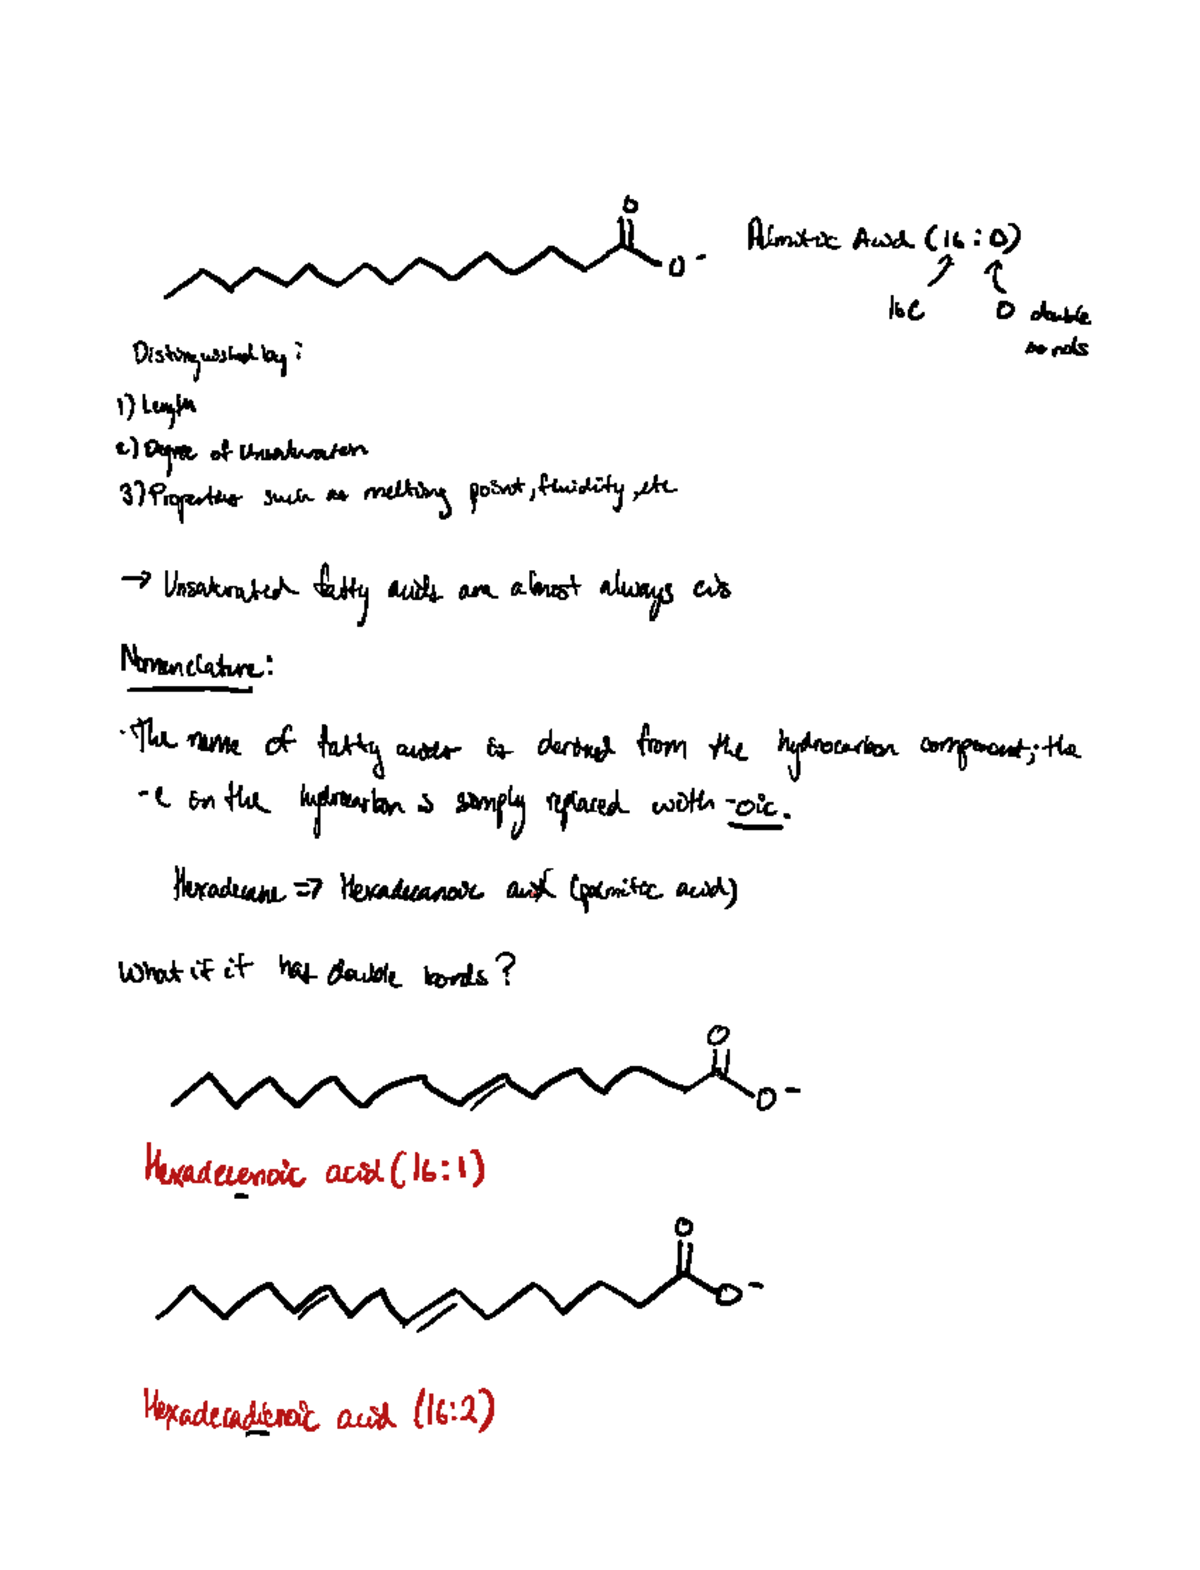 O
O -
Palmitic Acid (16:0)
16C
0 double
bonds
Distinguished by:
1) Length
2) Degree of Unsaturation
3) Properties such as melting point, fluidity, etc
→ Unsaturated fatty acids are almost always cis
Nomenclature:
· The name of fatty acids is derived from the hydrocarbon component; the
-e on the hydrocarbon is simply replaced with -oic.
Hexadecane => Hexadecanoic acid (palmitic acid)
What if it has double bonds?
O
O -
Hexadecenoic acid (16:1)
O
O -
Hexadecadienoic acid (16:2)